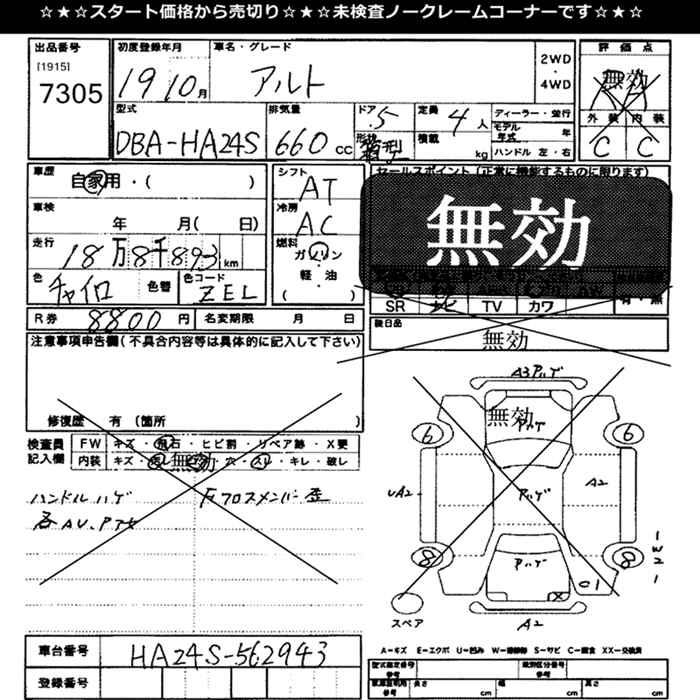 ☆★☆★スタート価格から売切り☆★☆★未検査ノークレームコーナーです☆★☆
出品番号
[1915]
7305
初度登録年月
19 10月
車名・グレード
アルト
2WD
・
4WD
評価点
無効
外装 内装
C C
型式
DBA-HA24S
排気量
660 cc
ドア
5
形状
箱型
定員
4人
積載
kg
ディーラー・並行
モデル年式 年
ハンドル 左・右
車歴
自家用・( )
車検
年 月( 日)
走行
18万8千893km
色
チャイロ
色替
色コード
ZEL
シフト
AT
冷房
AC
燃料
ガソリン
・
軽・油
( )
セールスポイント(正常に機能するものに限ります)
無効
SR ナビ TV カワ
有・無
後日品
無効
R券 8800円
名変期限 月 日
注意事項申告欄(不具合内容等は具体的に記入して下さい)
修復歴 有(箇所 )
検査員
記入欄
FW キズ・飛石・ヒビ割・リペア跡・X要
内装 キズ・汚レ・穴・スレ・キレ・破レ
無効
ハンドルハゲ
各AU、PT女
右フロスメンバー歪
A3アルゲ
無効
6 6
UA2
A2
8 8
01
A2
スペア
A-キズ E-エクボ U-凹み W-補修跡 S-サビ C-腐食 XX-交換済
車台番号
HA24S-562943
登録番号
型式指定番号
参考
類別区分番号
参考
長さ cm
幅 cm
高さ cm